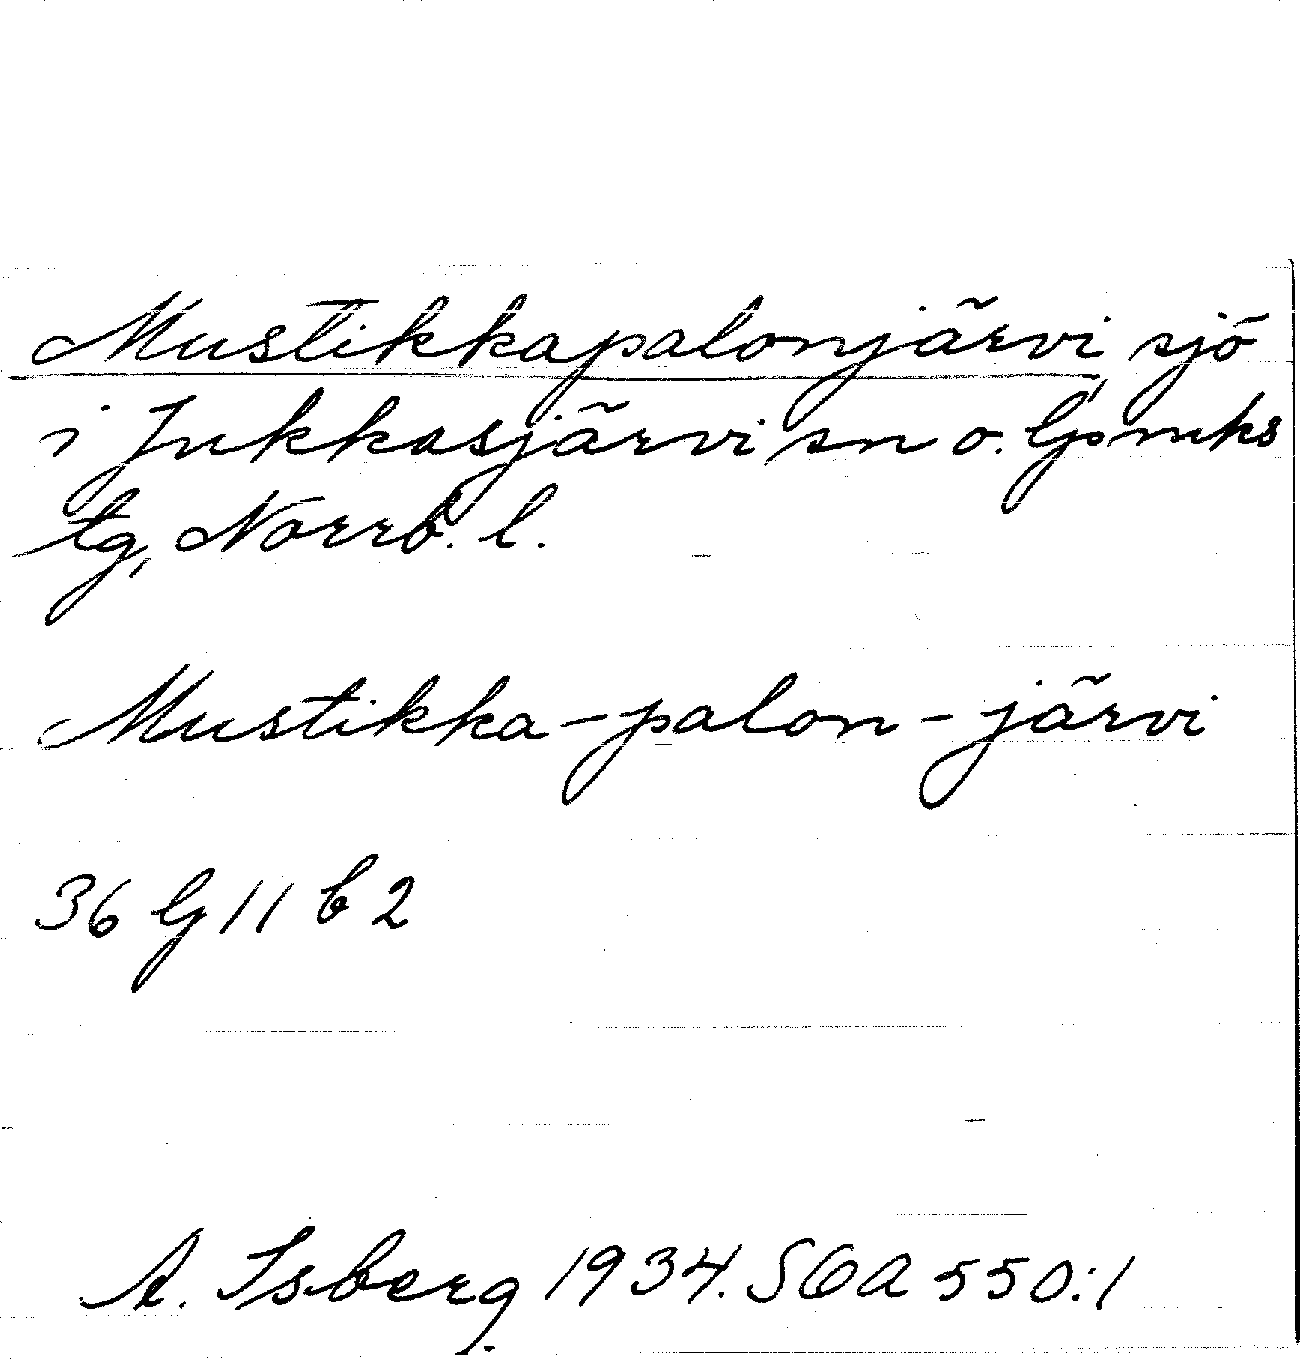 Mustikkapalonjärvi, sjö
i Jukkasjärvi sn o. Gjomks
tg, Norrb. l.
Mustikka-palon-järvi
36 G 11 b 2
A. Isberg 1934. SOA 550:1